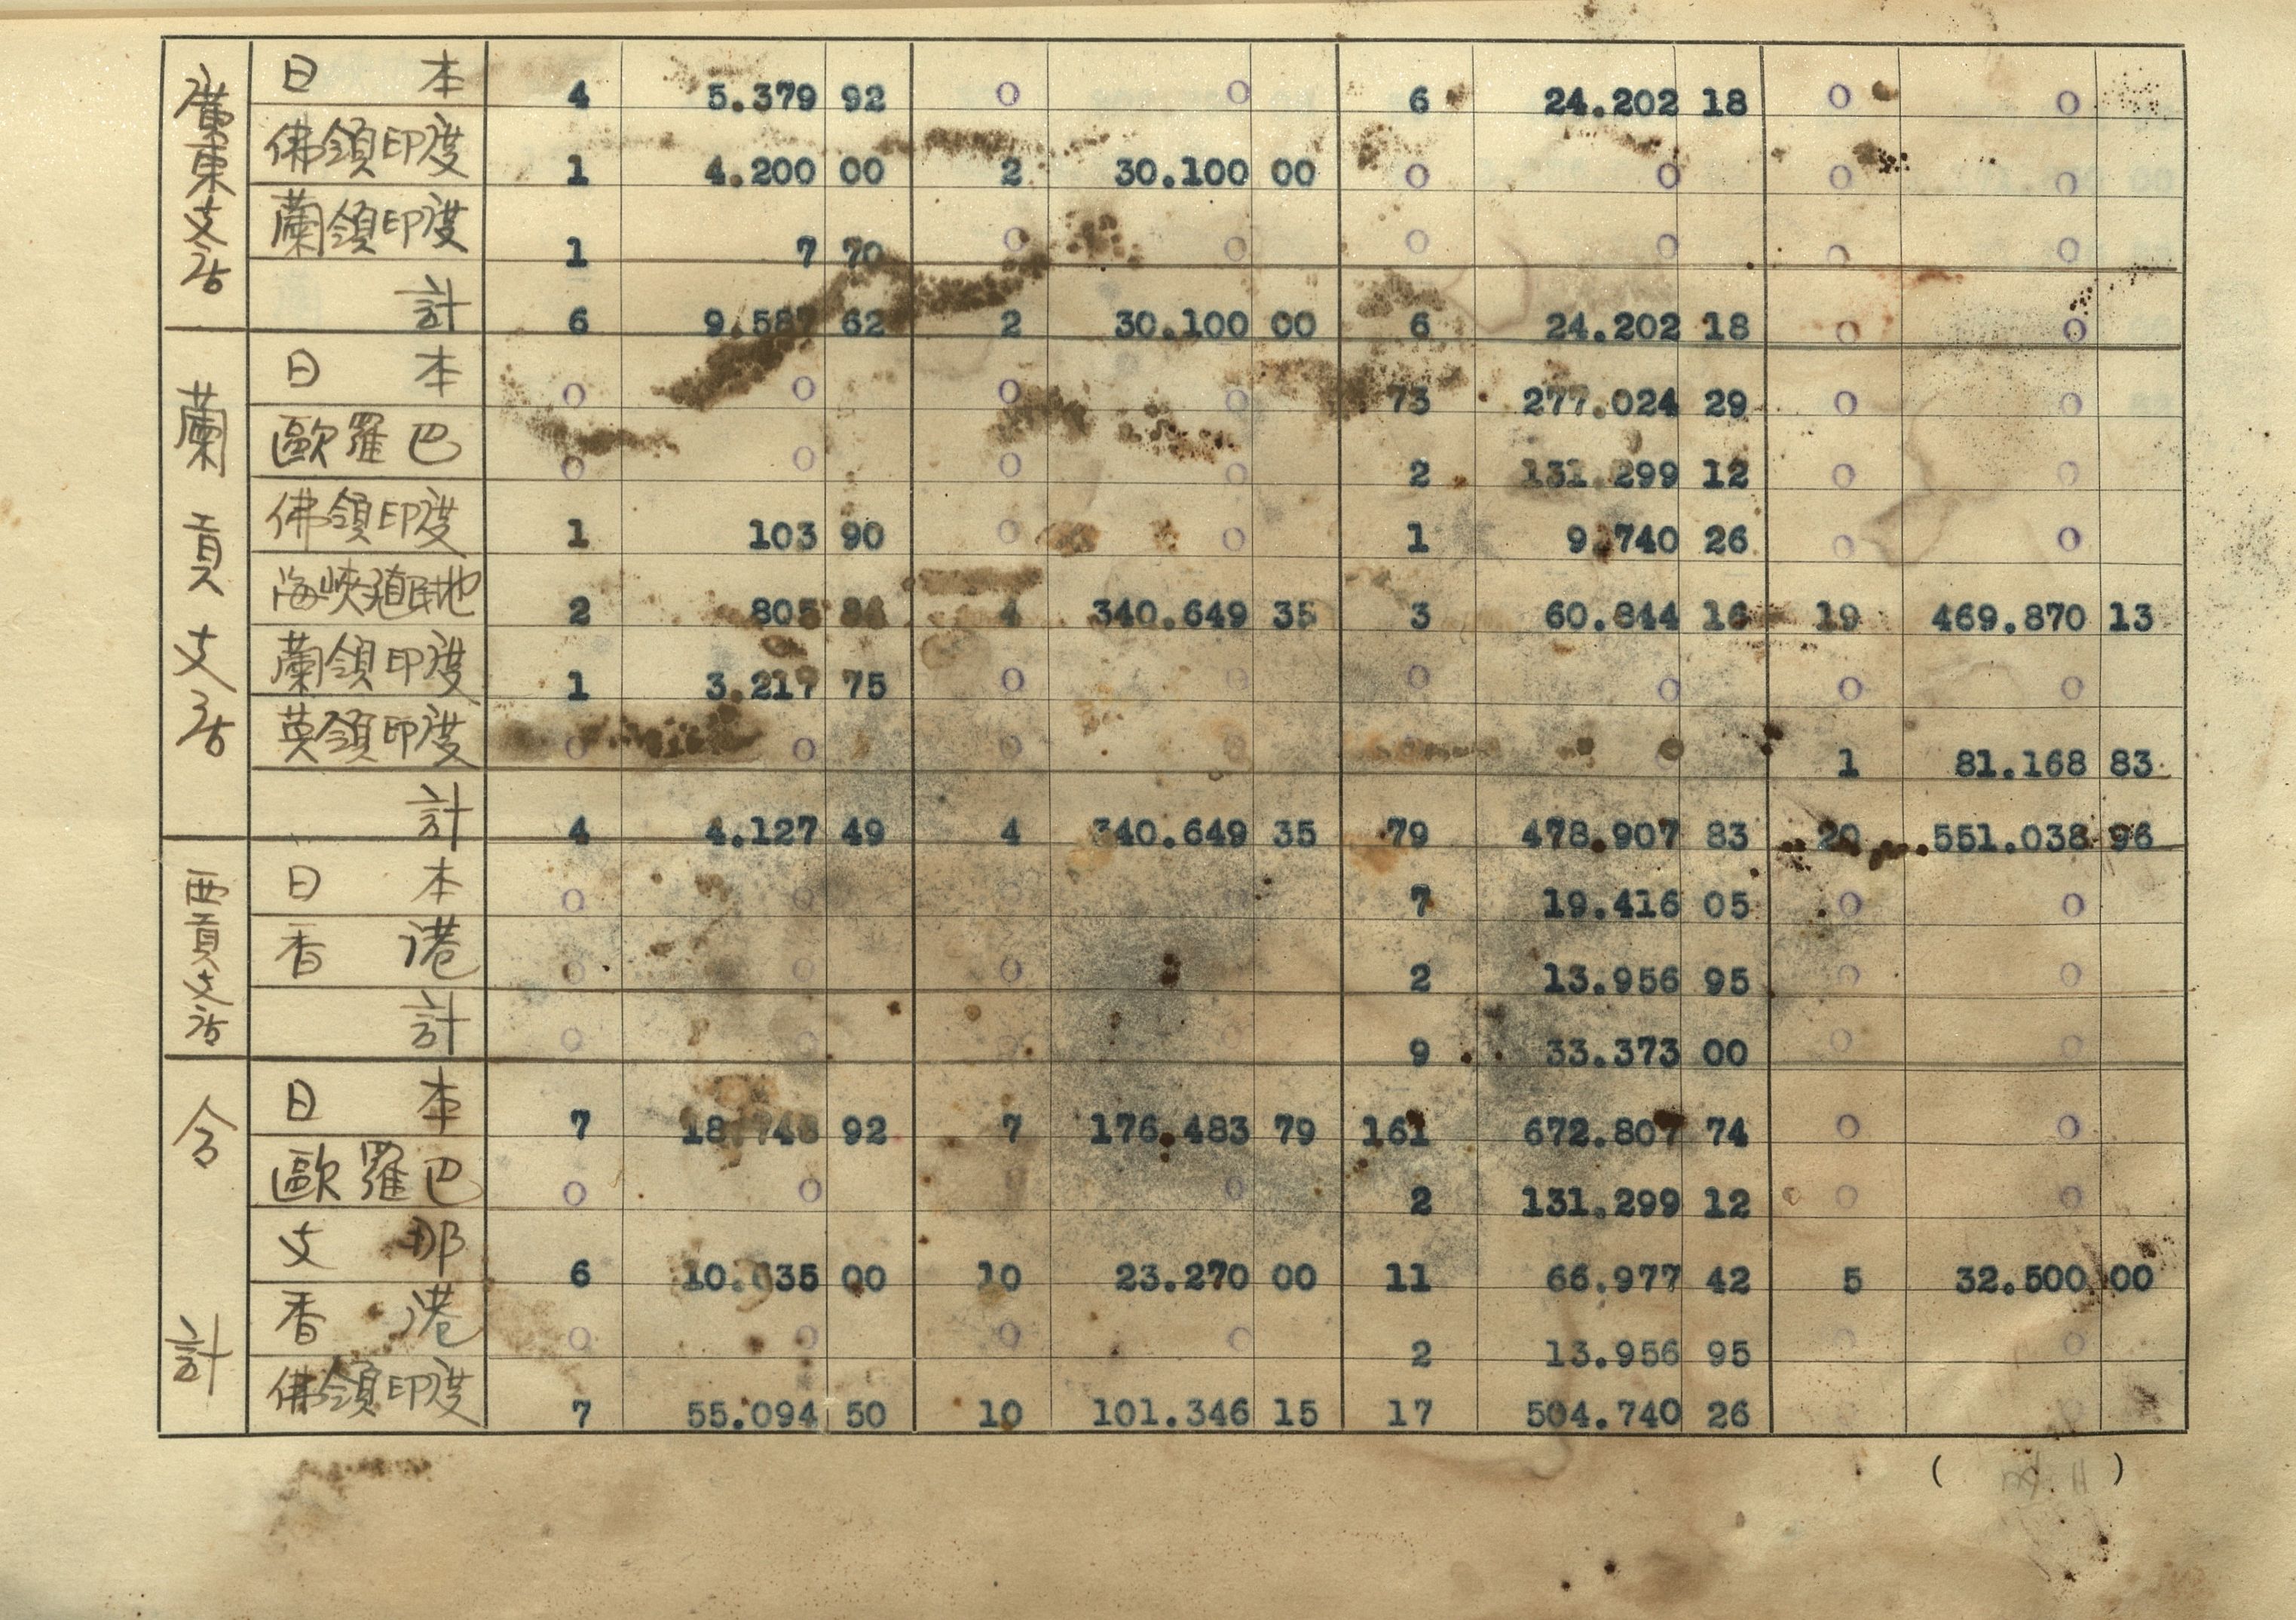 廣東支店
日本 4 5.379 92 0 0 6 24.202 18 0 0
佛領印度 1 4.200 00 2 30.100 00 0 0 0 0
蘭領印度 1 7 70 0 0 0 0 0 0
計 6 9.587 62 2 30.100 00 6 24.202 18 0 0
蘭貢支店
日本 0 0 0 0 73 277.024 29 0 0
歐羅巴 0 0 0 0 2 131.299 12 0 0
佛領印度 1 103 90 0 0 1 9.740 26 0 0
海峽殖民地 2 805 84 4 340.649 35 3 60.844 16 19 469.870 13
蘭領印度 1 3.217 75 0 0 0 0 0 0
英領印度 0 0 0 0 0 0 1 81.168 83
計 4 4.127 49 4 340.649 35 79 478.907 83 20 551.038 96
西貢支店
日本 0 0 0 0 7 19.416 05 0 0
香港 0 0 0 0 2 13.956 95 0 0
計 0 0 0 0 9 33.373 00 0 0
合計
日本 7 18.748 92 7 176.483 79 161 672.807 74 0 0
歐羅巴 0 0 0 0 2 131.299 12 0 0
支那 6 10.635 00 10 23.270 00 11 66.977 42 5 32.500 00
香港 0 0 0 0 2 13.956 95 0 0
佛領印度 7 55.094 50 10 101.346 15 17 504.740 26 0 0